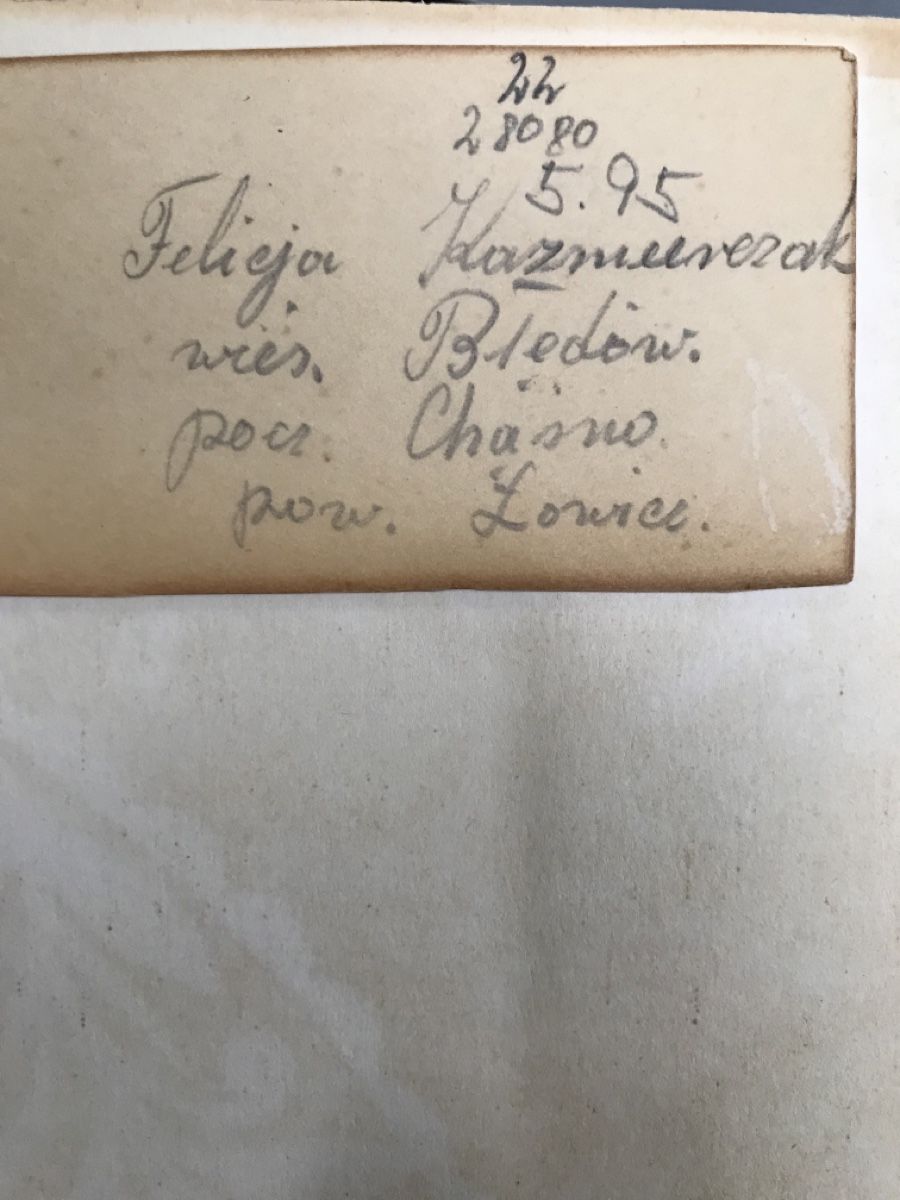 22
28080
5.95
Felicja Kazmierczak
wieś. Błędów.
pocz. Chąśno.
pow. Łowicz.